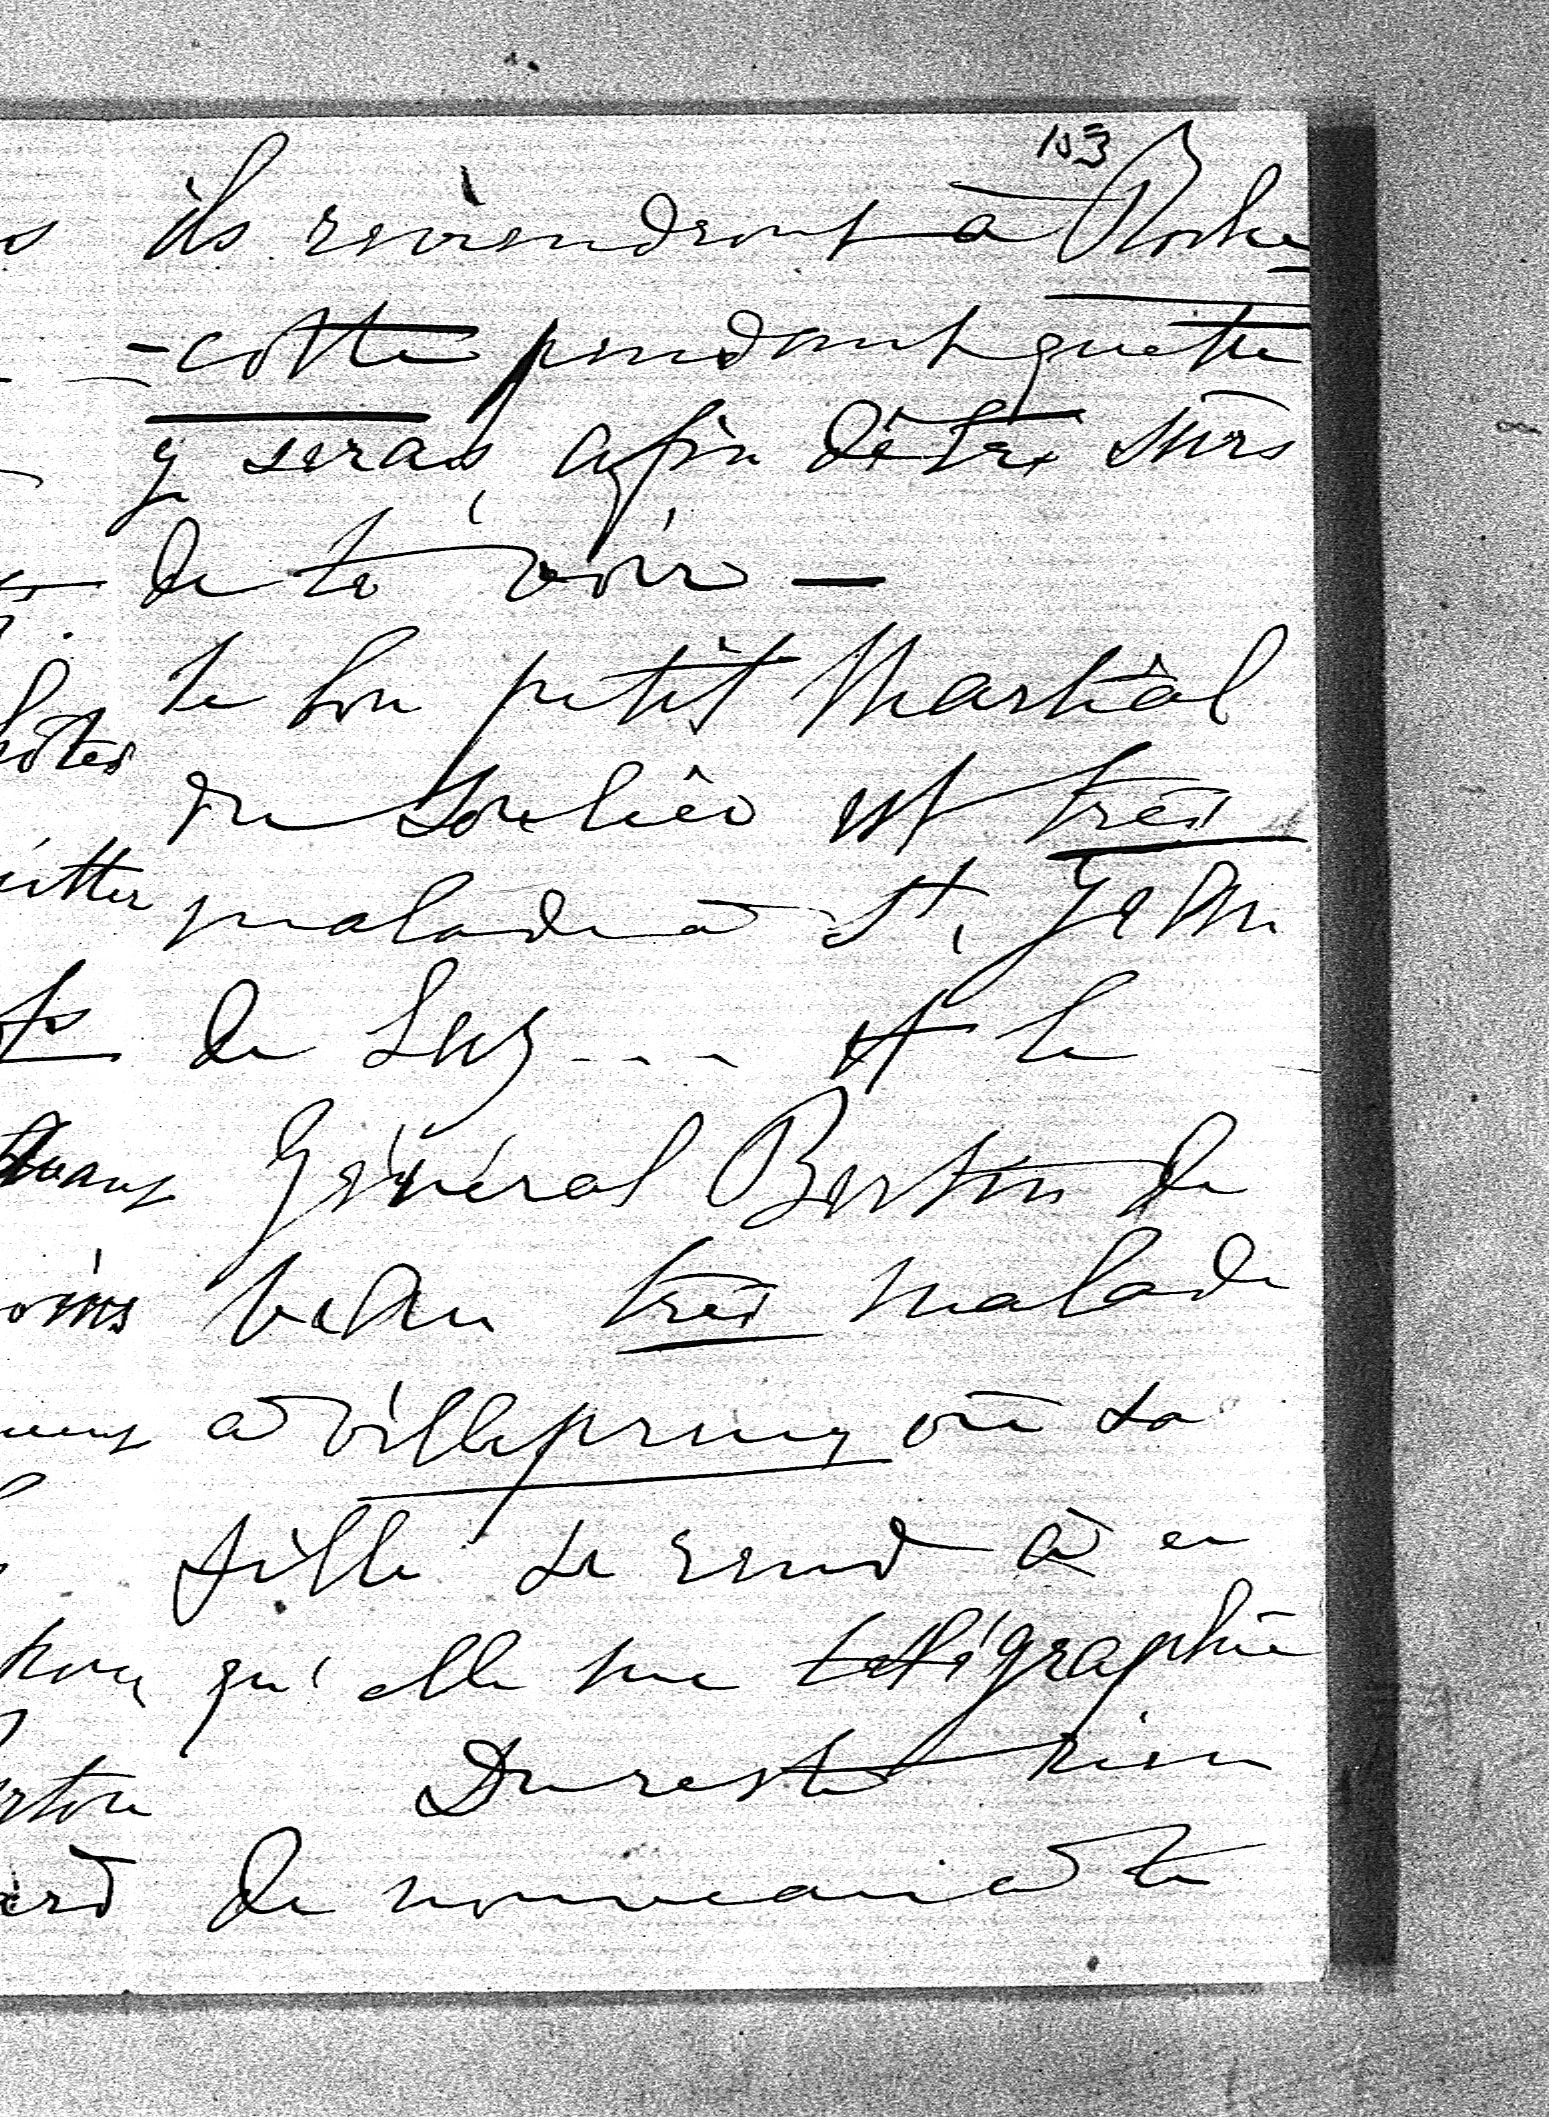 103
ils reviendront à Roche
-cotte pendant que tu
y seras, afin d'être sûrs
de te voir —
le bon petit Martial
du Soulier est très
malade à St. Jean
de Luz - - - et le
Général Bertin de
Vaux très malade
à Villepreux où sa
fille se rend à ce
qu'elle me télégraphie
Du reste rien
de nouveau à te